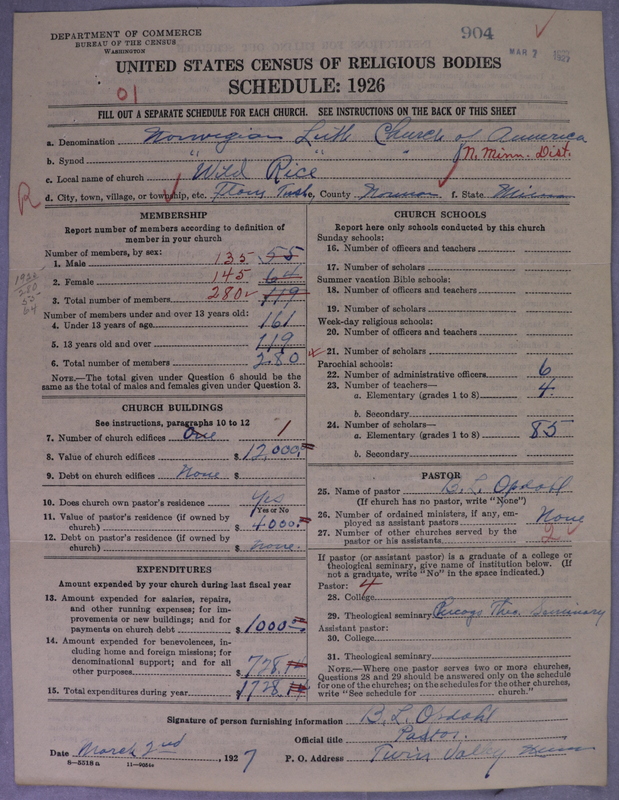 DEPARTMENT OF COMMERCE
BUREAU OF THE CENSUS
WASHINGTON
904
MAR 7
UNITED STATES CENSUS OF RELIGIOUS BODIES
SCHEDULE: 1926
01
FILL OUT A SEPARATE SCHEDULE FOR EACH CHURCH. SEE INSTRUCTIONS ON THE BACK OF THIS SHEET
a. Denomination Norwegian Luth Church of America
b. Synod " " " N. Minn. Dist.
c. Local name of church Wild Rice
R
d. City, town, village, or township, etc. e. County Norman f. State
MEMBERSHIP
Report number of members according to definition of
member in your church
Number of members, by sex:
1. Male 135 55
2. Female 145 64
3. Total number of members 280 119
Number of members under and over 13 years old:
4. Under 13 years of age 161
5. 13 years old and over 119
6. Total number of members 280
NOTE.—The total given under Question 6 should be the
same as the total of males and females given under Question 3.
CHURCH BUILDINGS
See instructions, paragraphs 10 to 12
7. Number of church edifices One 1
8. Value of church edifices $ 12,000
9. Debt on church edifices None $
10. Does church own pastor's residence Yes
Yes or No
11. Value of pastor's residence (if owned by
church) $ 4000
12. Debt on pastor's residence (if owned by
church) $ None.
EXPENDITURES
Amount expended by your church during last fiscal year
13. Amount expended for salaries, repairs,
and other running expenses; for im-
provements or new buildings; and for
payments on church debt $ 1000
14. Amount expended for benevolences, in-
cluding home and foreign missions; for
denominational support; and for all
other purposes $ 728
15. Total expenditures during year $ 1728
CHURCH SCHOOLS
Report here only schools conducted by this church
Sunday schools:
16. Number of officers and teachers
17. Number of scholars
Summer vacation Bible schools:
18. Number of officers and teachers
19. Number of scholars
Week-day religious schools:
20. Number of officers and teachers
21. Number of scholars
Parochial schools:
22. Number of administrative officers 6
23. Number of teachers—
a. Elementary (grades 1 to 8) 4.
b. Secondary
24. Number of scholars—
a. Elementary (grades 1 to 8) 85
b. Secondary
PASTOR
25. Name of pastor B. L. Opdahl
(If church has no pastor, write "None")
26. Number of ordained ministers, if any, em-
ployed as assistant pastors None
27. Number of other churches served by the
pastor or his assistants 2
If pastor (or assistant pastor) is a graduate of a college or
theological seminary, give name of institution below. (If
not a graduate, write "No" in the space indicated.)
Pastor: 4
28. College
29. Theological seminary Chicago Theo. Seminary
Assistant pastor:
30. College
31. Theological seminary
NOTE.—Where one pastor serves two or more churches,
Questions 28 and 29 should be answered only on the schedule
for one of the churches; on the schedules for the other churches,
write "See schedule for church."
Signature of person furnishing information B. L. Opdahl
Official title Pastor.
Date March 2nd, 1927 P. O. Address Twin Valley Minn
8—5518a 11—9051